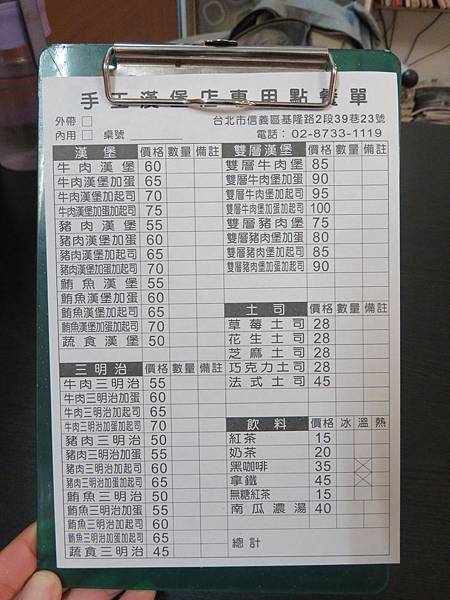 手工漢堡店專用點餐單
外帶 □ 台北市信義區基隆路2段39巷23號
內用 □ 桌號 電話： 02-8733-1119
漢堡 價格 數量 備註
牛肉漢堡 60
牛肉漢堡加蛋 65
牛肉漢堡加起司 70
牛肉漢堡加蛋加起司 75
豬肉漢堡 55
豬肉漢堡加蛋 60
豬肉漢堡加起司 65
豬肉漢堡加蛋加起司 70
鮪魚漢堡 55
鮪魚漢堡加蛋 60
鮪魚漢堡加起司 65
鮪魚漢堡加蛋加起司 70
蔬食漢堡 50
三明治 價格 數量 備註
牛肉三明治 55
牛肉三明治加蛋 60
牛肉三明治加起司 65
牛肉三明治加蛋加起司 70
豬肉三明治 50
豬肉三明治加蛋 55
豬肉三明治加起司 60
豬肉三明治加蛋加起司 65
鮪魚三明治 50
鮪魚三明治加蛋 55
鮪魚三明治加起司 60
鮪魚三明治加蛋加起司 65
蔬食三明治 45
雙層漢堡 價格 數量 備註
雙層牛肉堡 85
雙層牛肉堡加蛋 90
雙層牛肉堡加起司 95
雙層牛肉堡加蛋加起司 100
雙層豬肉堡 75
雙層豬肉堡加蛋 80
雙層豬肉堡加起司 85
雙層豬肉堡加蛋加起司 90
土司 價格 數量 備註
草莓土司 28
花生土司 28
芝麻土司 28
巧克力土司 28
法式土司 45
飲料 價格 冰 溫 熱
紅茶 15
奶茶 20
黑咖啡 35
拿鐵 45
無糖紅茶 15
南瓜濃湯 40
總計